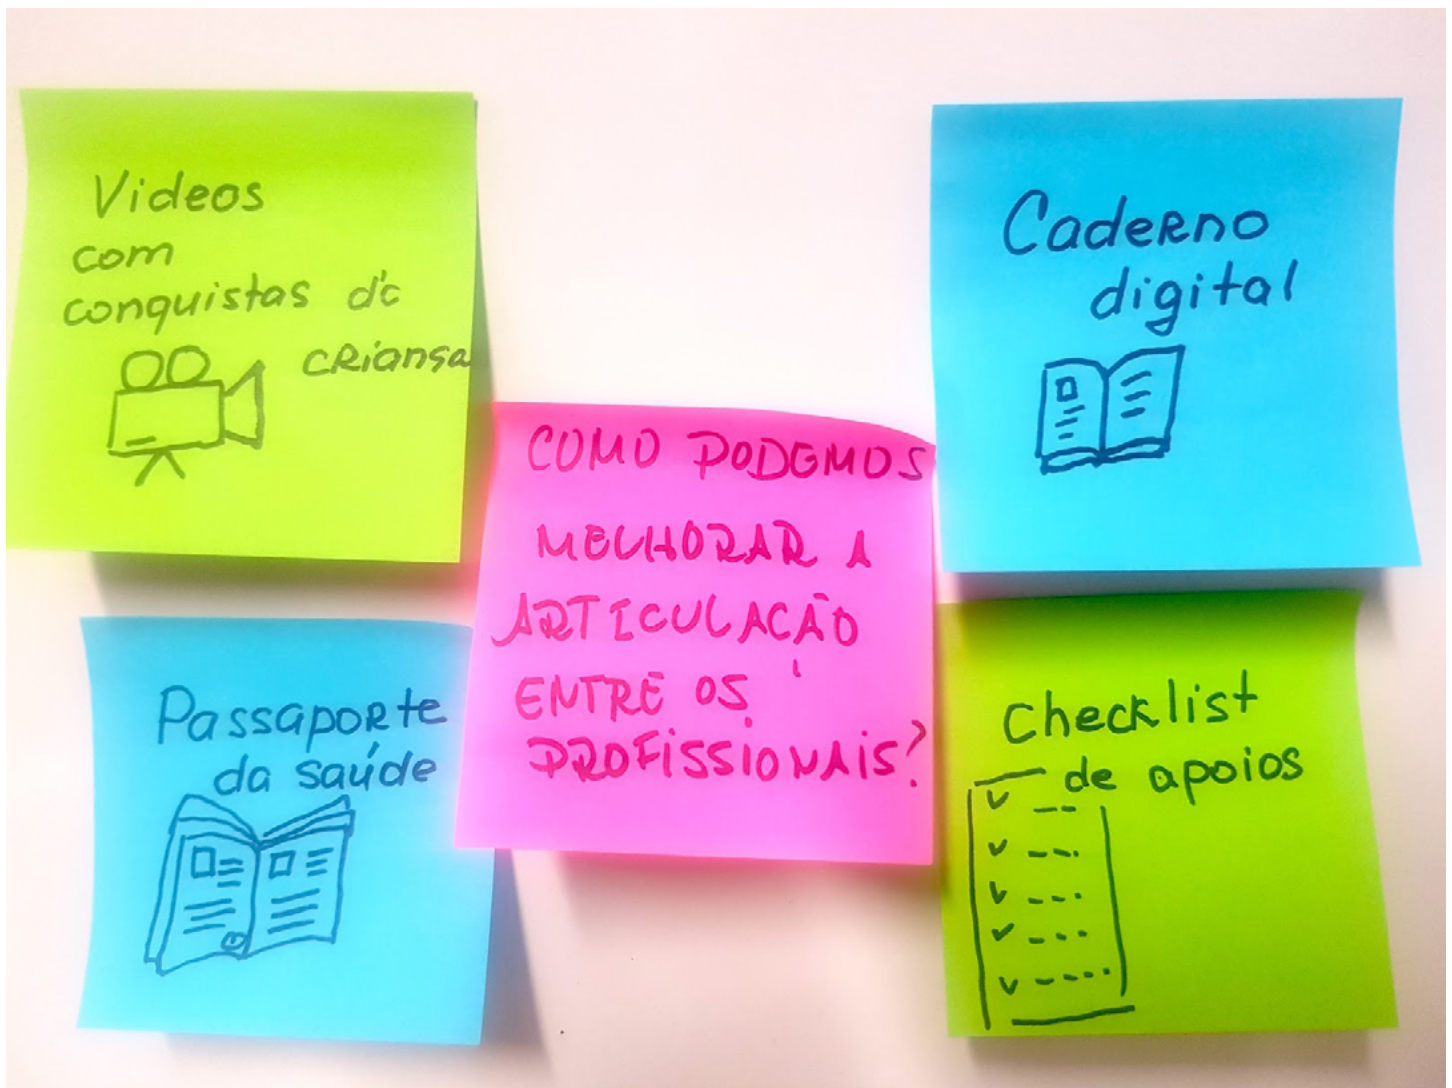 Videos
com
conquistas da
criansa
Caderno
digital
COMO PODEMOS
MELHORAR A
ARTICULAÇÃO
ENTRE OS
PROFISSIONAIS?
Passaporte
da saúde
checklist
de apoios